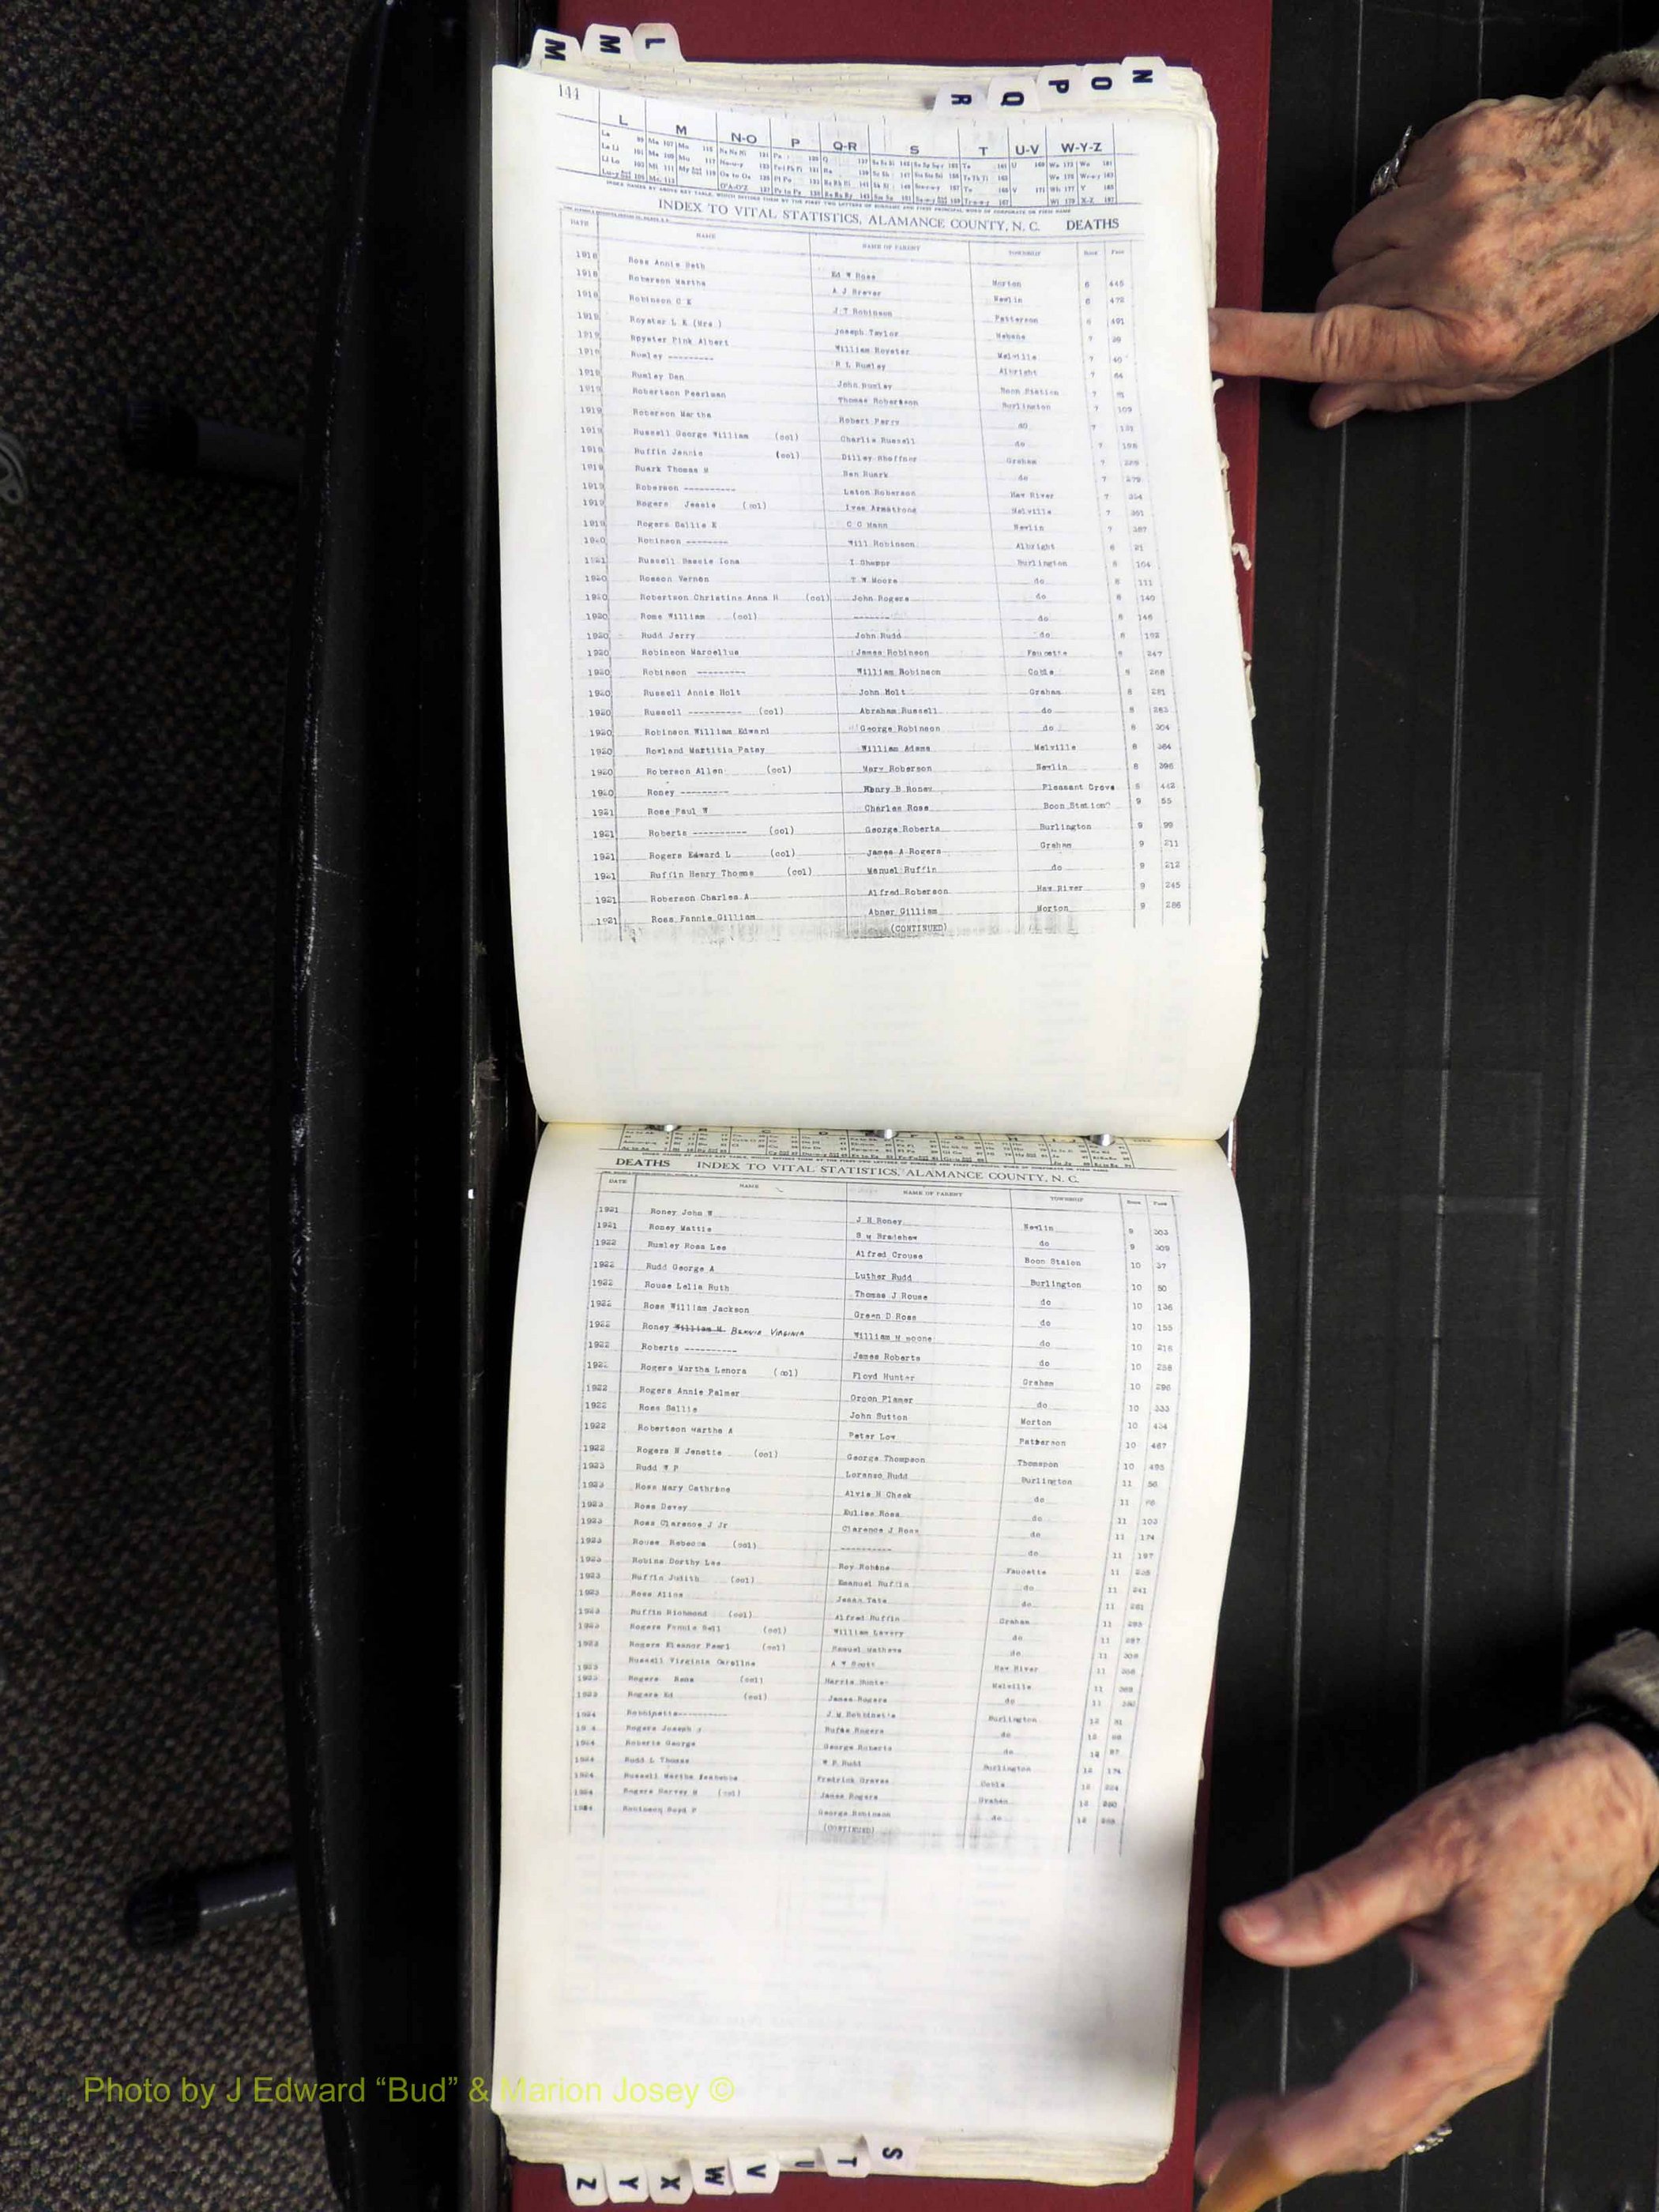 M M L
N O P Q R
144
L M N-O P Q-R S T U-V W-Y-Z
INDEX TO VITAL STATISTICS, ALAMANCE COUNTY, N. C. DEATHS
DATE NAME NAME OF PARENT TOWNSHIP Book Page
1918 Ross Annie Beth Ed W Ross Morton 6 445
1918 Roberson Martha A J Brewer Newlin 6 472
1918 Robinson C E J T Robinson Patterson 6 491
1919 Royster L E (Mrs ) Joseph Taylor Mebane 7
1919 Royster Pink Albert William Royster Melville 7 40
1919 Rumley --------- R L Rumley Albright 7 64
1919 Rumley Dan John Rumley Boon Station 7
1919 Robertson Pearlman Thomas Robertson Burlington 7 109
1919 Roberson Martha Robert Perry do 7 131
1919 Russell George William (col) Charlie Russell do 7 198
1919 Ruffin Jennie (col) Dilley Shoffner Graham 7
1919 Ruark Thomas M Ben Ruark do 7 279
1919 Roberson ---------- Laton Roberson Haw River 7
1919 Rogers Jessie (col) Ives Armstrong Melville 7
1919 Rogers Sallie E C C Mann Newlin 7 387
1920 Robinson -------- Will Robinson Albright 8 21
1921 Russell Bessie Iona I Sharpe Burlington 8 104
1920 Rosson Vernon T W Moore do 8 111
1920 Robertson Christine Anna H (col) John Rogers do 8 140
1920 Rose William (col) ------- do 8 146
1920 Rudd Jerry John Rudd do 8 192
1920 Robinson Marcellus James Robinson Faucette 8 247
1920 Robinson --------- William Robinson Coble 8 268
1920 Russell Annie Holt John Holt Graham 8 281
1920 Russell ---------- (col) Abraham Russell do 8 283
1920 Robinson William Edward George Robinson do 8 304
1920 Rowland Martitia Patsy William Adams Melville 8 364
1920 Roberson Allen (col) Mary Roberson Newlin 8 396
1920 Roney --------- Henry B Roney Pleasant Grove 8 442
1921 Rose Paul W Charles Rose Boon Station 9 55
1921 Roberts ---------- (col) George Roberts Burlington 9 99
1921 Rogers Edward L (col) James A Rogers Graham 9 211
1921 Ruffin Henry Thomas (col) Manuel Ruffin do 9 212
1921 Roberson Charles A Alfred Roberson Haw River 9 245
1921 Ross Fannie Gilliam Abner Gilliam Morton 9 286
(CONTINUED)
DEATHS INDEX TO VITAL STATISTICS, ALAMANCE COUNTY, N. C.
DATE NAME NAME OF PARENT TOWNSHIP Book Page
1921 Roney John W J H Roney Newlin 9 303
1921 Roney Mattie S M Bradshaw do 9 309
1922 Rumley Rosa Lee Alfred Crouse Boon Staion 10 37
1922 Rudd George A Luther Rudd Burlington 10 50
1922 Rouse Lelia Ruth Thomas J Rouse do 10 136
1922 Ross William Jackson Green D Ross do 10 155
1922 Roney William M BERNIE VIRGINIA William M Boone do 10 216
1922 Roberts ---------- James Roberts do 10 258
1922 Rogers Martha Lenora (col) Floyd Hunter Graham 10 296
1922 Rogers Annie Palmer Oroon Plamer do 10 333
1922 Ross Sallie John Sutton Morton 10 434
1922 Robertson Martha A Peter Low Patterson 10 467
1922 Rogers N Jenette (col) George Thompson Thomspon 10 495
1923 Rudd W P Loranso Rudd Burlington 11 56
1923 Ross Mary Cathrine Alvis H Cheek do 11
1923 Ross Davey Eulies Ross do 11 103
1923 Ross Clarence J Jr Clarence J Ross do 11 174
1923 Rouse Rebecca (col) ---------- do 11 197
1923 Robins Dorthy Lee Roy Robins Faucette 11
1923 Ruffin Judith (col) Emanuel Ruffin do 11 241
1923 Ross Alice Jesse Tate do 11 281
1923 Ruffin Richmond (col) Alfred Ruffin Graham 11
1923 Rogers Fannie Bell (col) William Lavery do 11 297
1923 Rogers Eleanor Pearl (col) Manuel Mathews do 11 308
1923 Russell Virginia Caroline A W Scott Haw River 11
1923 Rogers Rena (col) Harris Hunter Melville 11
1923 Rogers Ed (col) James Rogers do 11
1924 Robbinette---------- J.M.Robbinette Burlington 12
1924 Rogers Joseph J Rufus Rogers do 12
1924 Roberts George George Roberts do 12 87
1924 Rudd L Thomas W P Rudd Burlington 12 174
1924 Russell Martha Fredrick Graves Coble 12 224
1924 Rogers Harvey M (col) James Rogers Graham 12
1924 Robinson Boyd P George Robinson do 12
(CONTINUED)
S T U V W X Y Z
Photo by J Edward “Bud” & Marion Josey ©